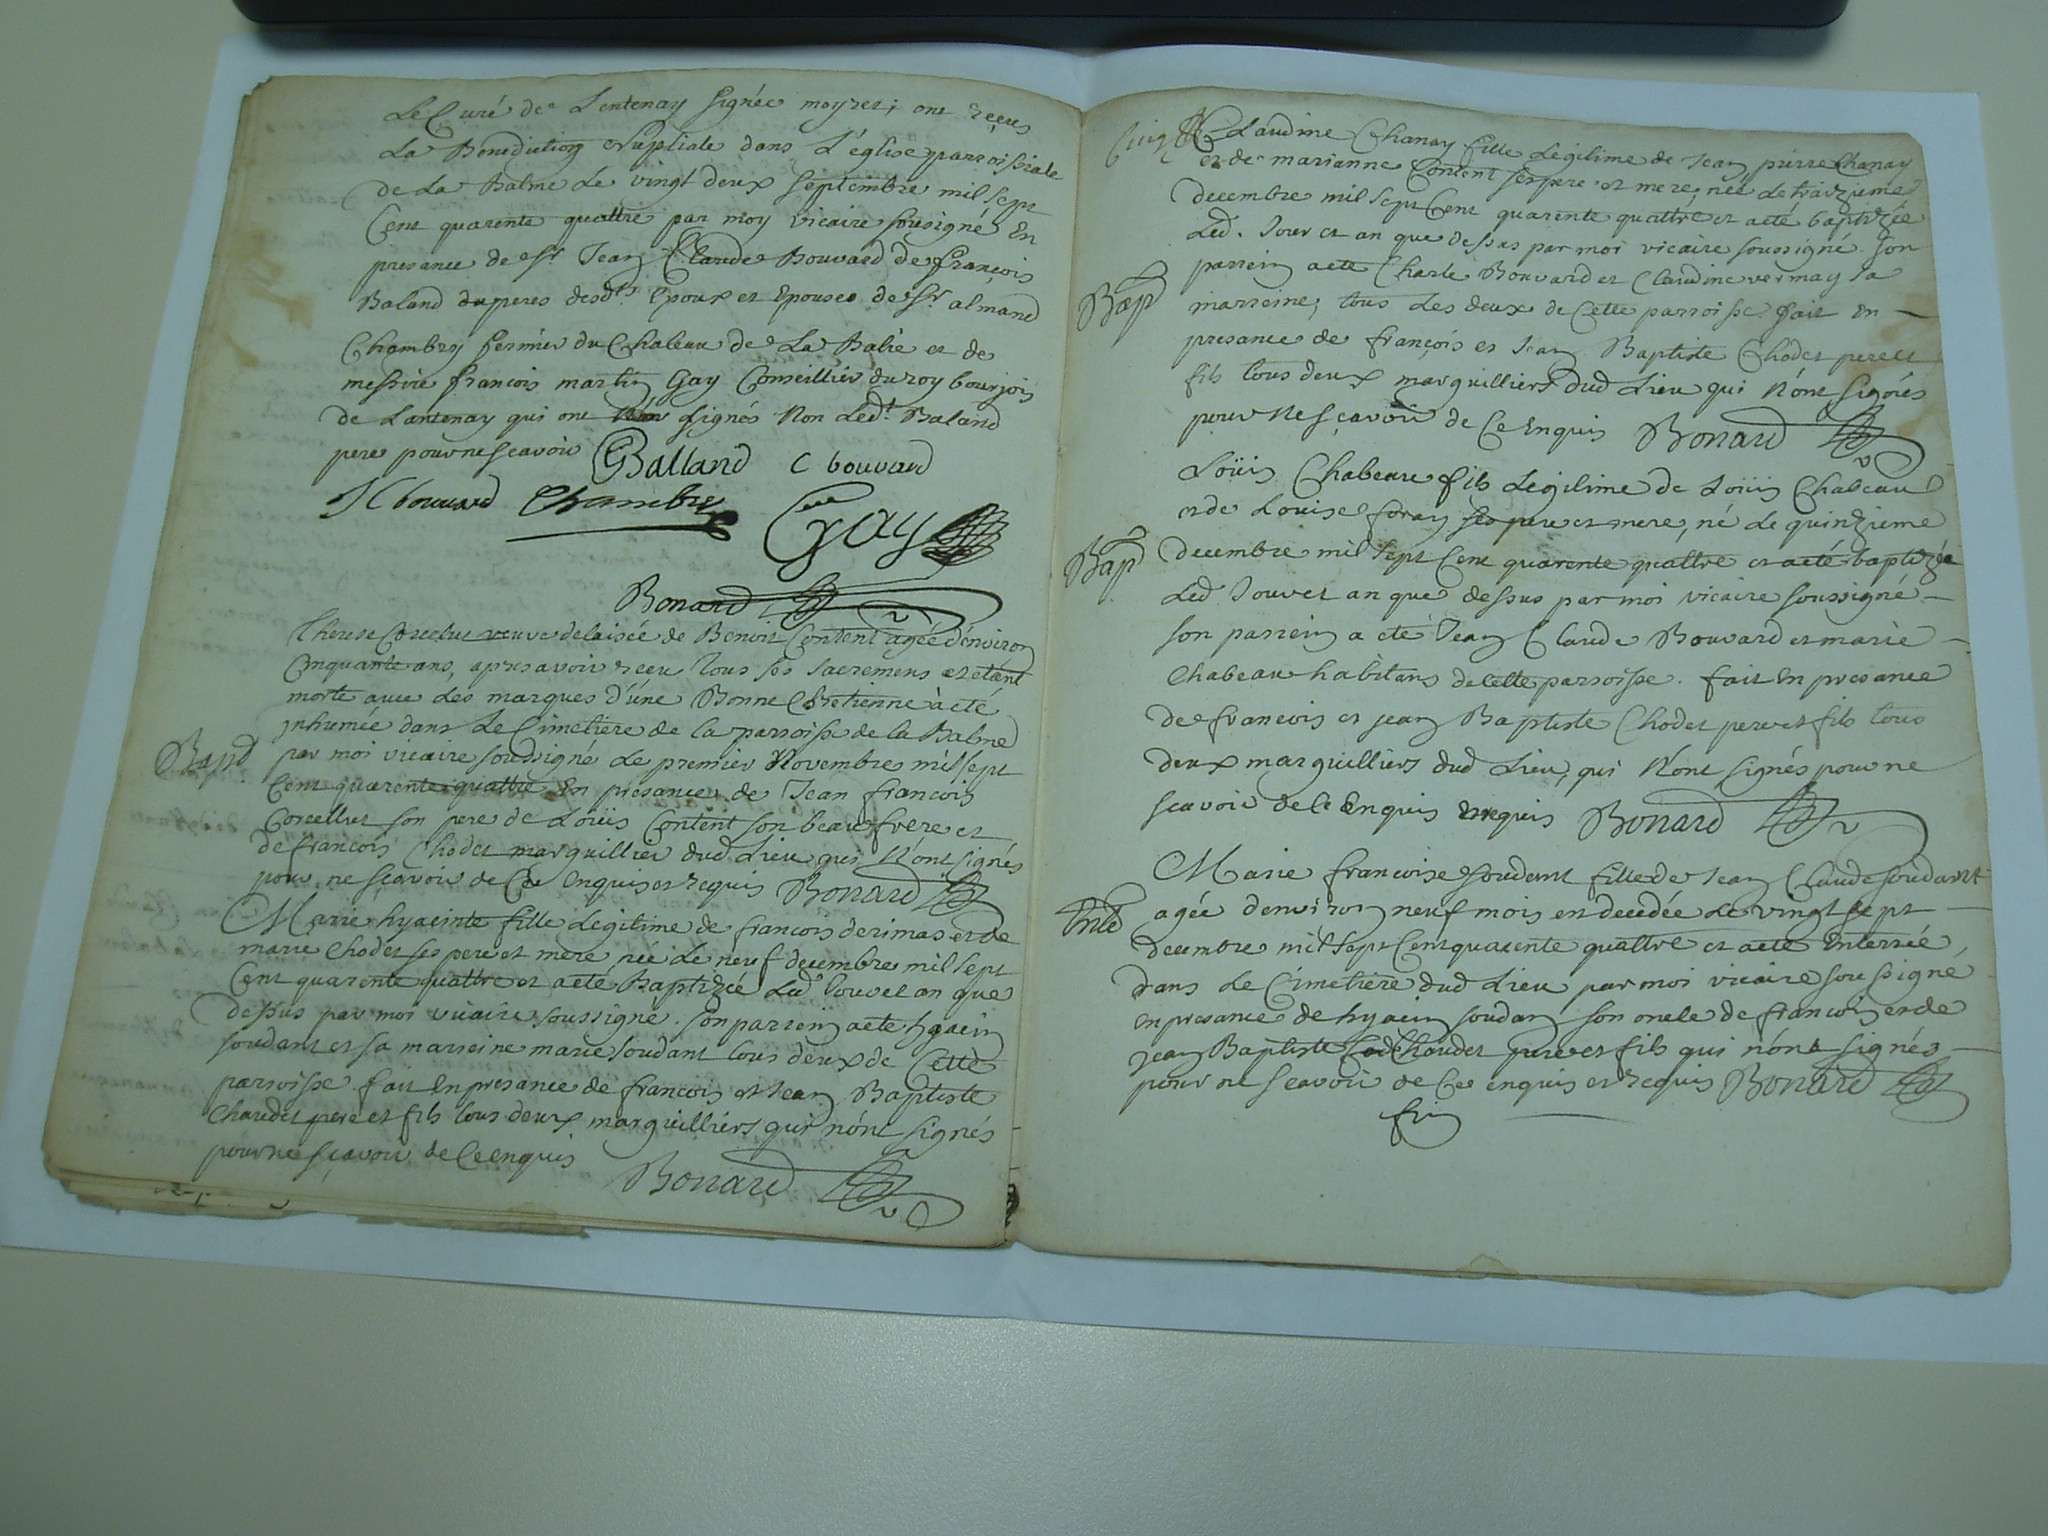 Le Curé de Lentenay signée moyret; ont reçeus
La Benediction Nuptiale dans L'église parroissiale
de La Balme Le vingt deux septembre mil sept
Cent quarente quattre par moy vicaire sousigné En
presance de Sr Jean Claude Bouvard de françois
Baland peres desdts Epoux et Epouse de Sr almand
Chambry fermier du Chateau de La Batie et de
messire francois martin Gay Conseillier du roy bourjois
de Lantenay qui ont signés Non Ledt Baland
pere pour ne scavoir Balland C bouvard
J C bouvard Chambre Gay
Bonard
veuve delaisée de Benoit Content agée d'environ
Cinquante ans, apres avoir receu tous ses sacremens et etant
morte avec des marques d'une Bonne Chretienne à eté
inhumée dans Le Cimetiere de la parroisse de la Balme
Bapt par moi vicaire soussigné Le premier Novembre mil sept
Cent quarente quattre En presance de Jean francois
Corcellut son pere de Loüis Content son beau frere et
de francois Chodet marguillier dud Lieu qui N'ont signés
pour ne sçavoir de Ce enquis et requis Bonard
Marie hyacinte fille Legitime de francois derimas et de
marie Chodet ses pere et mere née Le neuf decembre mil sept
Cent quarente quattre et a eté Baptizée Led Jour et an que
dessus par moi vicaire soussigné. son parrein a eté hyacin
soudant et sa marreine marie soudant tous deux de Cette
parroisse fait En presance de francois et Jean Baptiste
Chaudet pere et fils tous deux marguilliers qui n'ont signés
pour ne sçavoir de Ce enquis Bonard
Claudine Chanay fille Legitime de Jean pierre Chanay
et de marianne Content ses pere et mere, née Le traizieme
decembre mil sept Cent quarente quattre et a eté baptizée
Led. Jour et an que dessus par moi vicaire soussigné. son
parrein a eté Charle Bouvard et Claudine vernay sa
Bap marreine, tous Les deux de Cette parroisse. fait En
presance de françois et Jean Baptiste Chodet pere et
fils tous deux marguilliers dud Lieu qui N'ont signés
pour Ne sçavoir de Ce Enquis Bonard
Loüis Chabeau fils Legitime de Loüis Chabeau
et de Louise foray ses pere et mere, né Le quinzieme
Bap decembre mil sept Cent quarente quattre et a eté baptizée
Led Jour et an que dessus par moi vicaire soussigné
son parrein a eté Jean Claude Bouvard et marie
Chabeau habitans de Cette parroisse. fait En presance
de francois et jean Baptiste Chodet pere et fils tous
deux marguilliers dud Lieu, qui N'ont signés pour ne
scavoir de Ce Enquis Bonard
Marie francoise soudant fille de Jean Claude soudant
agée d'environ neuf mois est decedée Le vingt sept
decembre mil sept Cent quarente quattre et a eté Enterrée
dans Le Cimetiere dud Lieu par moi vicaire soussigné
en presance de hyacin soudan son oncle de francois et de
jean Baptiste Chaudet pere et fils qui n'ont signés
pour ne scavoir de Ce enquis et requis Bonard
fin